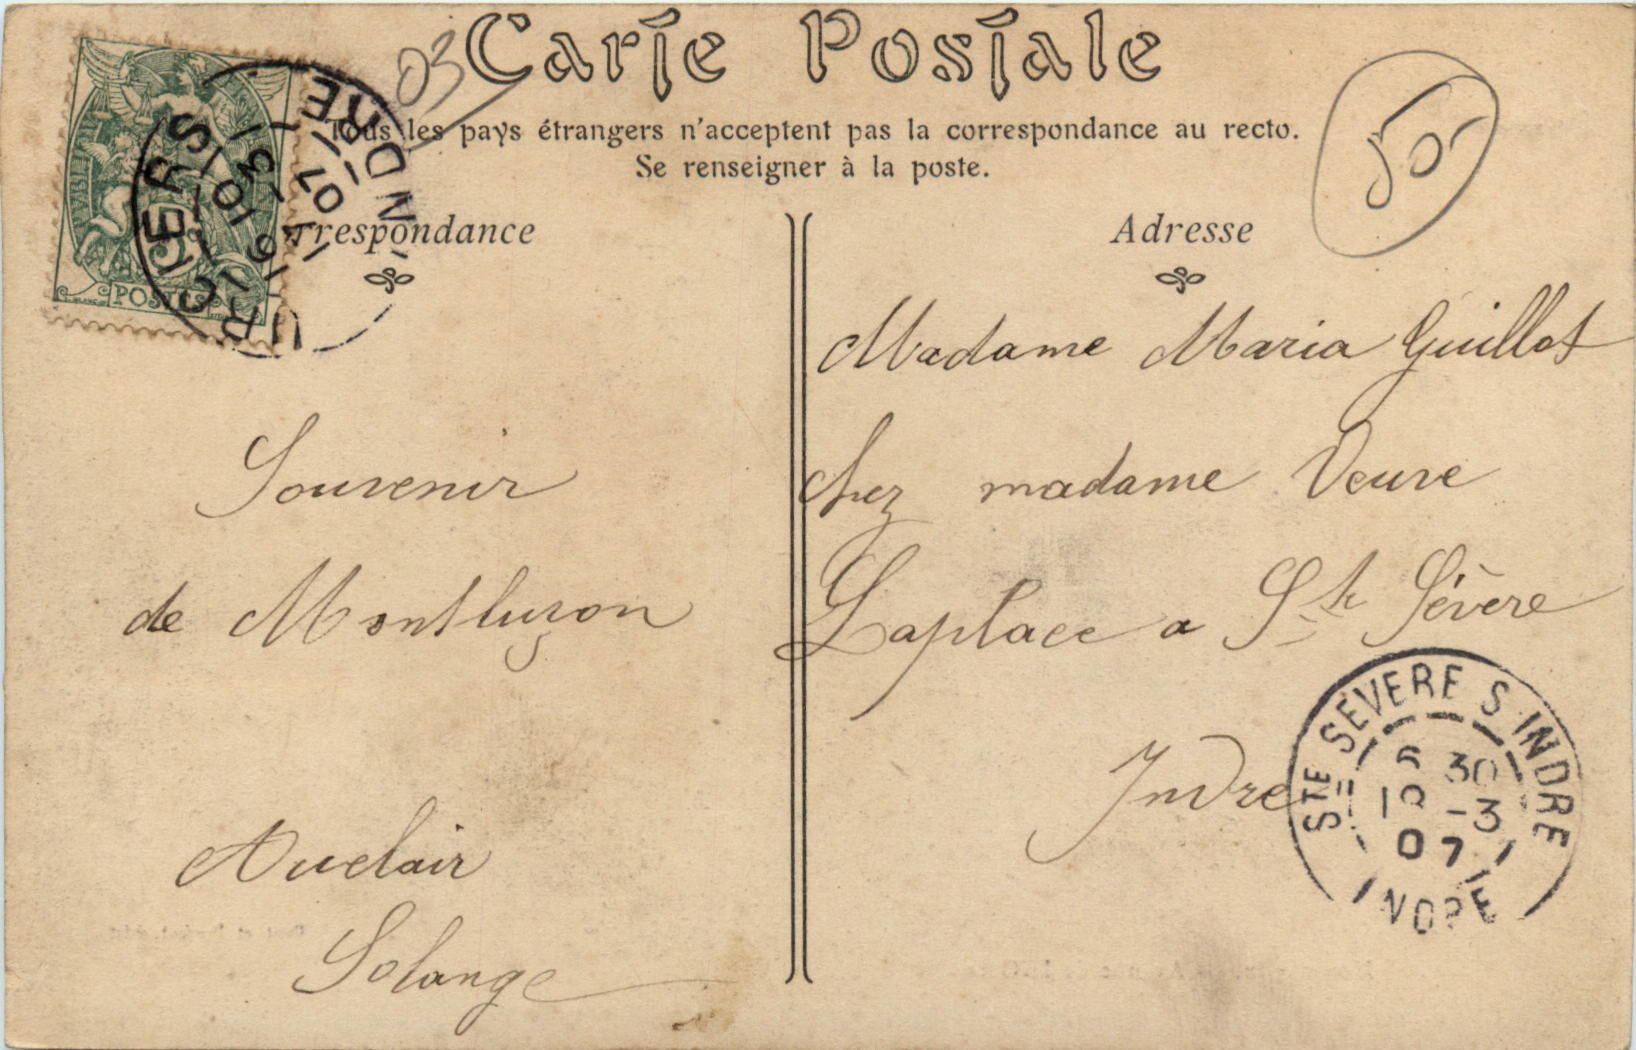 Carte Postale
03
Tous les pays étrangers n'acceptent pas la correspondance au recto.
Se renseigner à la poste.
50-
respondance
Adresse
POSTES
URCIERS
INDRE
10 15
16 -3
07
Madame Maria Guillot
chez madame Veuve
Laplace a Ste Sévère
Indre
Souvenir
de Montluçon
Auclair
Solange
STE SEVERE S. INDRE
6 30
-3
07
INDRE